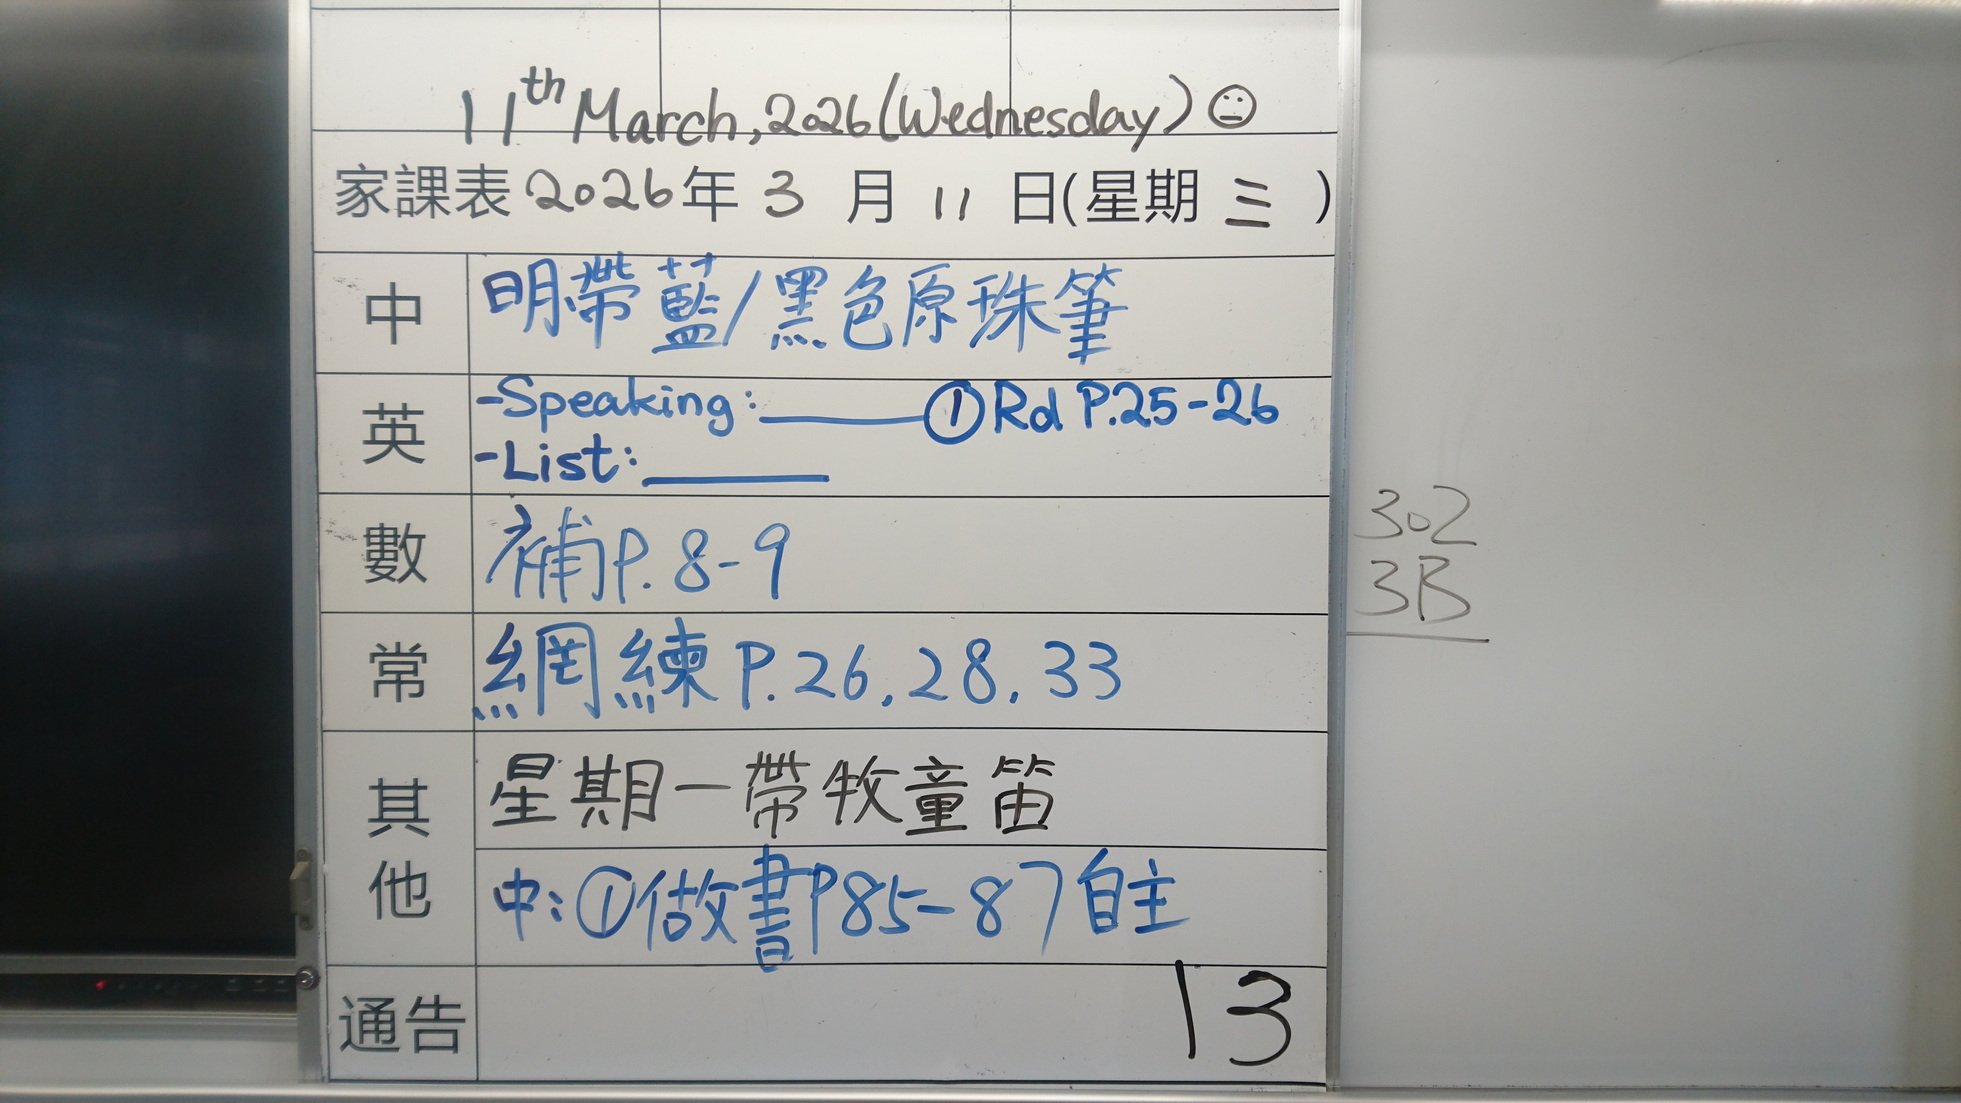 11th March, 2026 (Wednesday)
家課表 2026年 3 月 11 日(星期 三 )
中 明帶藍/黑色原珠筆
英 -Speaking: ______ ① Rd P.25-26
-List: ______
數 補P. 8-9
常 網練 P. 26, 28, 33
其他 星期一帶牧童笛
中: ①做書P85-87自主
通告 13
302
3B